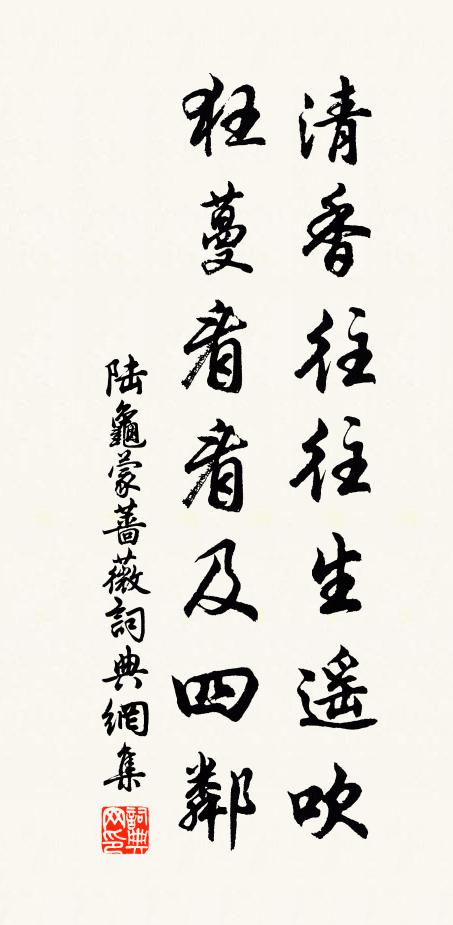 清香往往生遥吹
狂蔓看看及四鄰
陆龜蒙蔷薇詞典網集
詞典网印